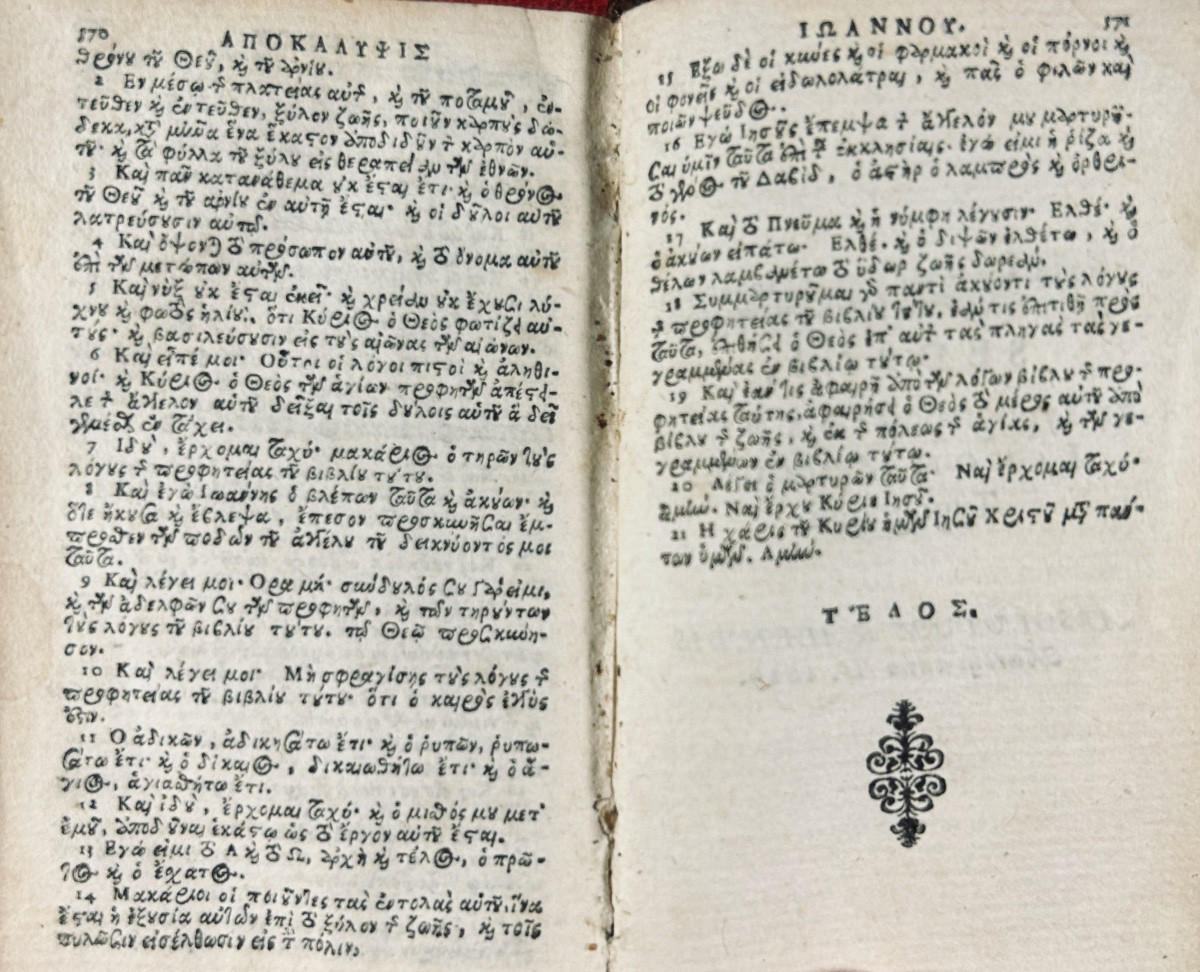 570
ΑΠΟΚΑΛΥΨΙΣ
θρόνου τοῦ Θεοῦ, καὶ τοῦ ἀρνίου.
2 Εν μέσῳ τῆς πλατείας αὐτῆς, καὶ τοῦ ποταμοῦ, ἐν-
τεῦθεν καὶ ἐντεῦθεν, ξύλον ζωῆς, ποιοῦν καρποὺς δώ-
δεκα, κατὰ μῆνα ἕνα ἕκαστον ἀποδιδοῦν τὸν καρπὸν αὐ-
τοῦ· καὶ τὰ φύλλα τοῦ ξύλου εἰς θεραπείαν τῶν ἐθνῶν.
3 Καὶ πᾶν κατανάθεμα οὐκ ἔσται ἔτι· καὶ ὁ θρόνος
τοῦ Θεοῦ καὶ τοῦ ἀρνίου ἐν αὐτῇ ἔσται· καὶ οἱ δοῦλοι αὐτοῦ
λατρεύσουσιν αὐτῷ.
4 Καὶ ὄψονται τὸ πρόσωπον αὐτοῦ, καὶ τὸ ὄνομα αὐτοῦ
ἐπὶ τῶν μετώπων αὐτῶν.
5 Καὶ νὺξ οὐκ ἔσται ἐκεῖ· καὶ χρείαν οὐκ ἔχουσι λύ-
χνου καὶ φωτὸς ἡλίου. ὅτι Κύριος ὁ Θεὸς φωτίζει αὐ-
τούς· καὶ βασιλεύσουσιν εἰς τοὺς αἰῶνας τῶν αἰώνων.
6 Καὶ εἶπέ μοι· Οὗτοι οἱ λόγοι πιστοὶ καὶ ἀληθι-
νοί· καὶ Κύριος ὁ Θεὸς τῶν ἁγίων προφητῶν ἀπέστει-
λε τὸν ἄγγελον αὐτοῦ δεῖξαι τοῖς δούλοις αὐτοῦ ἃ δεῖ
γενέσθαι ἐν τάχει.
7 Ιδοὺ, ἔρχομαι ταχύ· μακάριος ὁ τηρῶν τοὺς
λόγους τῆς προφητείας τοῦ βιβλίου τούτου.
8 Καὶ ἐγὼ Ιωάννης ὁ βλέπων ταῦτα καὶ ἀκούων· καὶ
ὅτε ἤκουσα καὶ ἔβλεψα, ἔπεσον προσκυνῆσαι ἔμ-
προσθεν τῶν ποδῶν τοῦ ἀγγέλου τοῦ δεικνύοντός μοι
ταῦτα.
9 Καὶ λέγει μοι· Ορα μή· σύνδουλός σου γάρ εἰμι,
καὶ τῶν ἀδελφῶν σου τῶν προφητῶν, καὶ τῶν τηρούντων
τοὺς λόγους τοῦ βιβλίου τούτου. τῷ Θεῷ προσκύνη-
σον.
10 Καὶ λέγει μοι· Μὴ σφραγίσῃς τοὺς λόγους τῆς
προφητείας τοῦ βιβλίου τούτου· ὅτι ὁ καιρὸς ἐγγύς
ἐστιν.
11 Ο ἀδικῶν, ἀδικησάτω ἔτι· καὶ ὁ ῥυπῶν, ῥυπω-
σάτω ἔτι· καὶ ὁ δίκαιος, δικαιωθήτω ἔτι· καὶ ὁ ἅ-
γιος, ἁγιασθήτω ἔτι.
12 Καὶ ἰδοὺ, ἔρχομαι ταχύ· καὶ ὁ μισθός μου μετ'
ἐμοῦ, ἀποδοῦναι ἑκάστῳ ὡς τὸ ἔργον αὐτοῦ ἔσται.
13 Εγώ εἰμι τὸ Α καὶ τὸ Ω, ἀρχὴ καὶ τέλος, ὁ πρῶ-
τος καὶ ὁ ἔσχατος.
14 Μακάριοι οἱ ποιοῦντες τὰς ἐντολὰς αὐτοῦ, ἵνα
ἔσται ἡ ἐξουσία αὐτῶν ἐπὶ τὸ ξύλον τῆς ζωῆς, καὶ τοῖς
πυλῶσιν εἰσέλθωσιν εἰς τὴν πόλιν,
ΙΩΑΝΝΟΥ.
571
15 Εξω δὲ οἱ κύνες καὶ οἱ φαρμακοὶ καὶ οἱ πόρνοι καὶ
οἱ φονεῖς καὶ οἱ εἰδωλολάτραι, καὶ πᾶς ὁ φιλῶν καὶ
ποιῶν ψεῦδος.
16 Εγὼ Ιησοῦς ἔπεμψα τὸν ἄγγελόν μου μαρτυρῆ-
σαι ὑμῖν ταῦτα ἐπὶ ταῖς ἐκκλησίαις· ἐγώ εἰμι ἡ ῥίζα καὶ
τὸ γένος τοῦ Δαβὶδ, ὁ ἀστὴρ ὁ λαμπρὸς καὶ ὀρθρι-
νός.
17 Καὶ τὸ Πνεῦμα καὶ ἡ νύμφη λέγουσιν· Ελθέ· καὶ
ὁ ἀκούων εἰπάτω· Ελθέ. καὶ ὁ διψῶν ἐλθέτω, καὶ ὁ
θέλων λαμβανέτω τὸ ὕδωρ ζωῆς δωρεάν.
18 Συμμαρτυροῦμαι γὰρ παντὶ ἀκούοντι τοὺς λόγους
τῆς προφητείας τοῦ βιβλίου τούτου. ἐάν τις ἐπιτιθῇ πρὸς
ταῦτα, ἐπιθήσει ὁ Θεὸς ἐπ' αὐτὸν τὰς πληγὰς τὰς γε-
γραμμένας ἐν βιβλίῳ τούτῳ·
19 Καὶ ἐάν τις ἀφαιρῇ ἀπὸ τῶν λόγων βίβλου τῆς προ-
φητείας ταύτης, ἀφαιρήσει ὁ Θεὸς τὸ μέρος αὐτοῦ ἀπὸ
βίβλου τῆς ζωῆς, καὶ ἐκ τῆς πόλεως τῆς ἁγίας, καὶ τῶν γε-
γραμμένων ἐν βιβλίῳ τούτῳ.
20 Λέγει ὁ μαρτυρῶν ταῦτα· Ναὶ ἔρχομαι ταχύ·
ἀμήν. Ναὶ ἔρχου Κύριε Ιησοῦ.
21 Η χάρις τοῦ Κυρίου ἡμῶν Ιησοῦ Χριστοῦ μετὰ πάν-
των ὑμῶν. Αμήν.
ΤΕΛΟΣ.